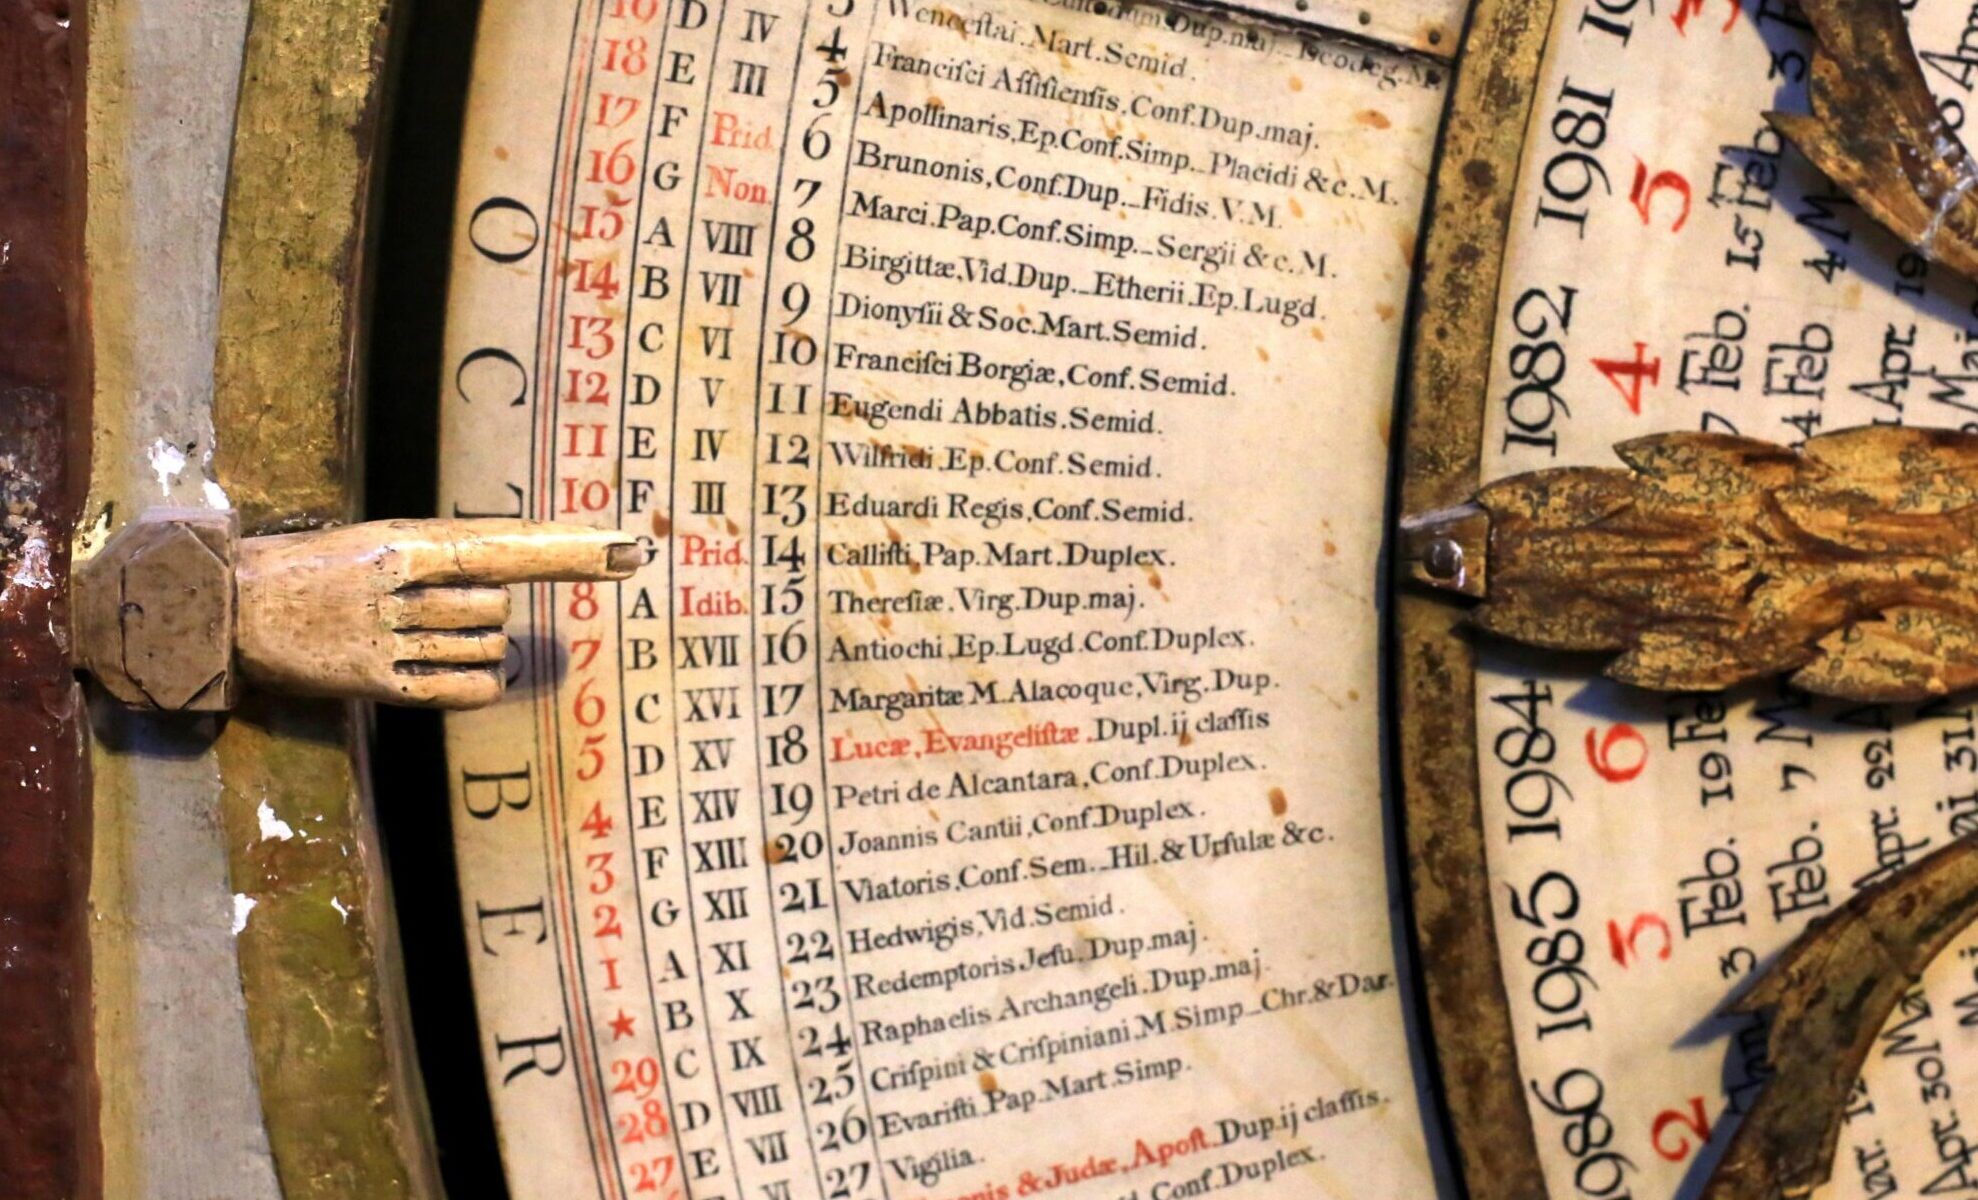 19 D IV 3 Wenceſtai. Mart. Semid.
18 E III 4 Franciſci Aſſiſienſis, Conf. Dup. maj.
17 F Prid. 5 Apollinaris, Ep. Conf. Simp._ Placidi & c. M.
16 G Non. 6 Brunonis, Conf. Dup._ Fidis. V. M.
15 A VIII 7 Marci. Pap. Conf. Simp._ Sergii & c. M.
14 B VII 8 Birgittæ, Vid. Dup._ Etherii. Ep. Lugd.
13 C VI 9 Dionyſii & Soc. Mart. Semid.
12 D V 10 Franciſci Borgiæ, Conf. Semid.
11 E IV 11 Eugendi Abbatis. Semid.
10 F III 12 Wilfridi, Ep. Conf. Semid.
13 Eduardi Regis, Conf. Semid.
G Prid. 14 Calliſti, Pap. Mart. Duplex.
8 A Idib. 15 Thereſiæ. Virg. Dup. maj.
7 B XVII 16 Antiochi, Ep. Lugd. Conf. Duplex.
6 C XVI 17 Margaritæ M. Alacoque, Virg. Dup.
5 D XV 18 Lucæ, Evangeliſtæ. Dupl. ij claſſis
4 E XIV 19 Petri de Alcantara, Conf. Duplex.
3 F XIII 20 Joannis Cantii, Conf. Duplex.
2 G XII 21 Viatoris, Conf. Sem._ Hil. & Urſulæ & c.
1 A XI 22 Hedwigis, Vid. Semid.
★ B X 23 Redemptoris Jeſu. Dup. maj.
29 C IX 24 Raphaelis Archangeli. Dup. maj.
28 D VIII 25 Criſpini & Criſpiniani. M. Simp_ Chr. & Dar.
27 E VII 26 Evariſti. Pap. Mart. Simp.
VI 27 Vigilia.
& Judæ, Apoſt. Dup. ij claſſis.
Conf. Duplex.
O C T B E R
1981 5 15 Feb
1982 4 7 Feb. 24 Feb
1984 6 19 Feb. 7 M
1985 3 3 Feb.
1986 2